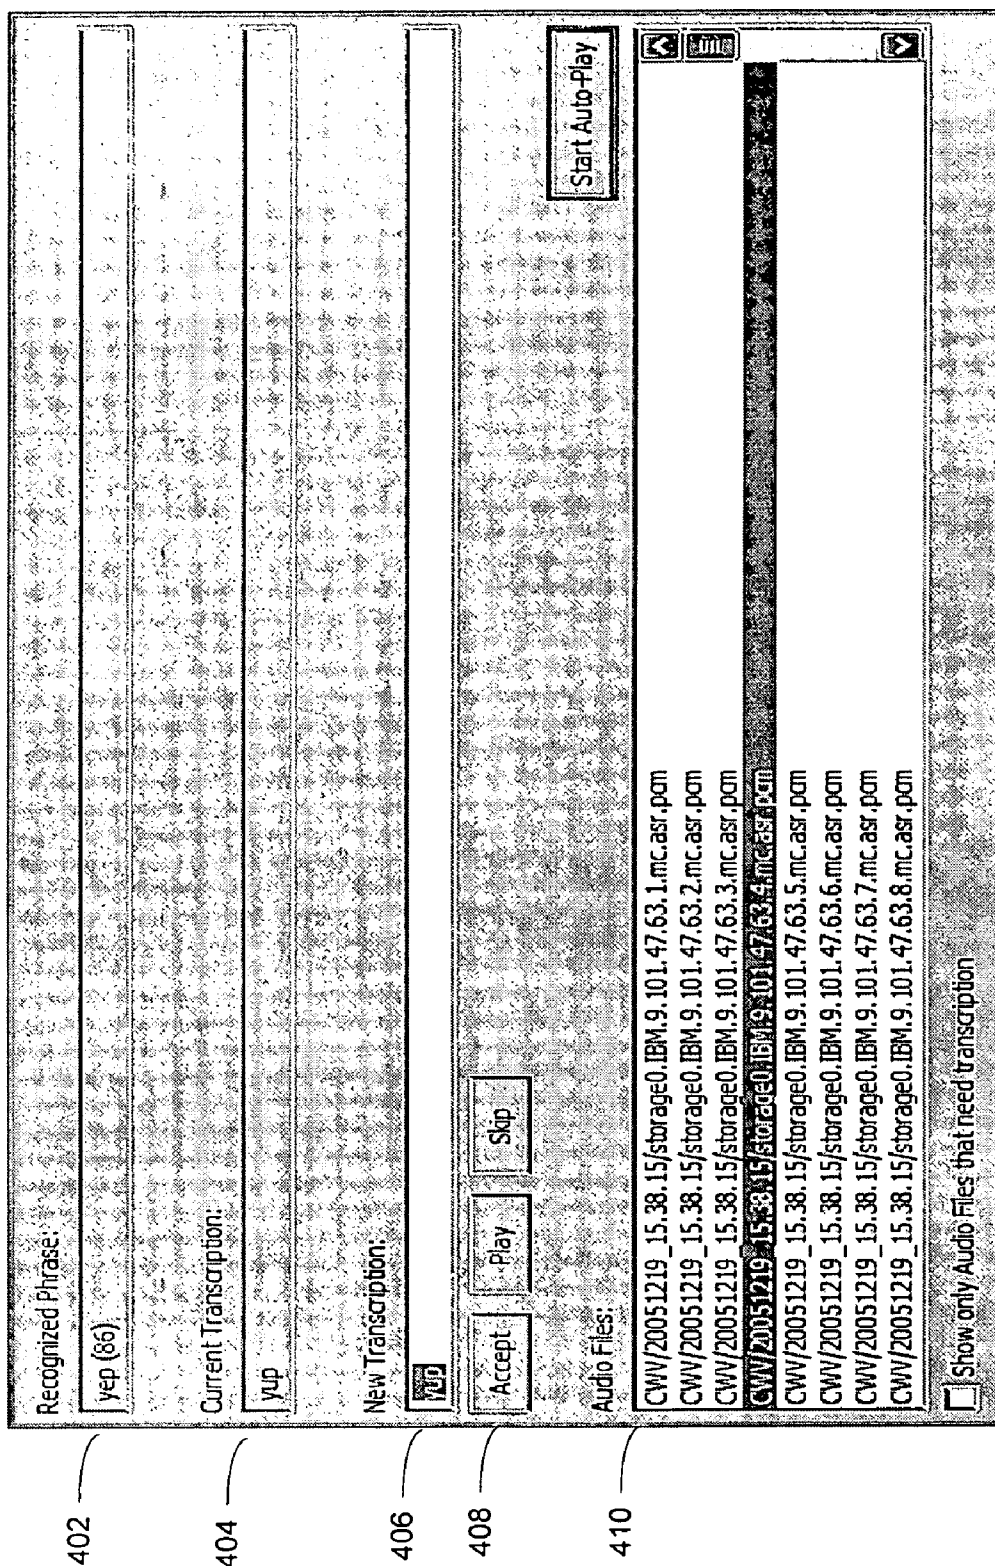 402
Recognized Phrase:
yep (86)
404
Current Transcription:
yup
406
New Transcription:
yup
408
Accept
Play
Skip
Start Auto-Play
410
Audio Files:
CWV/20051219_15.38.15/storage0.IBM.9.101.47.63.1.mc.asr.pcm
CWV/20051219_15.38.15/storage0.IBM.9.101.47.63.2.mc.asr.pcm
CWV/20051219_15.38.15/storage0.IBM.9.101.47.63.3.mc.asr.pcm
CWV/20051219_15.38.15/storage0.IBM.9.101.47.63.4.mc.asr.pcm
CWV/20051219_15.38.15/storage0.IBM.9.101.47.63.5.mc.asr.pcm
CWV/20051219_15.38.15/storage0.IBM.9.101.47.63.6.mc.asr.pcm
CWV/20051219_15.38.15/storage0.IBM.9.101.47.63.7.mc.asr.pcm
CWV/20051219_15.38.15/storage0.IBM.9.101.47.63.8.mc.asr.pcm
Show only Audio Files that need transcription